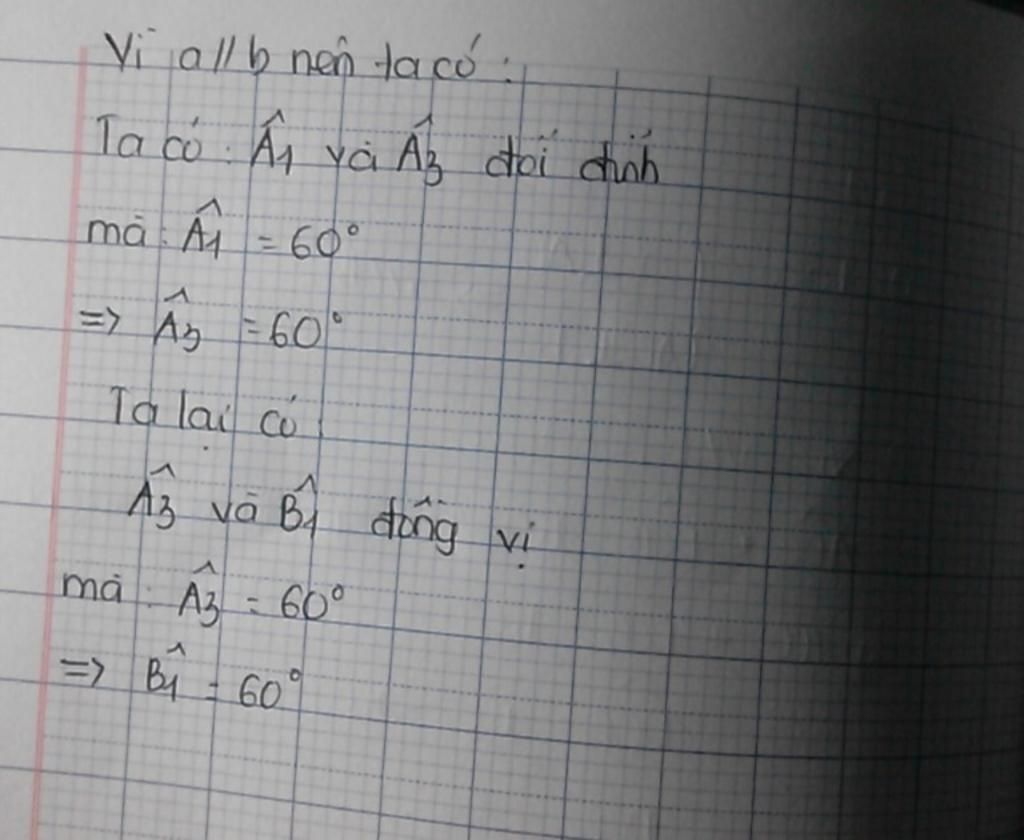 Vì a//b nên ta có :
Ta có : Â1 và Â3 đối đỉnh
mà : Â1 = 60°
=> Â3 = 60°
Ta lại có
Â3 và B̂1 đồng vị
mà : Â3 = 60°
=> B̂1 = 60°